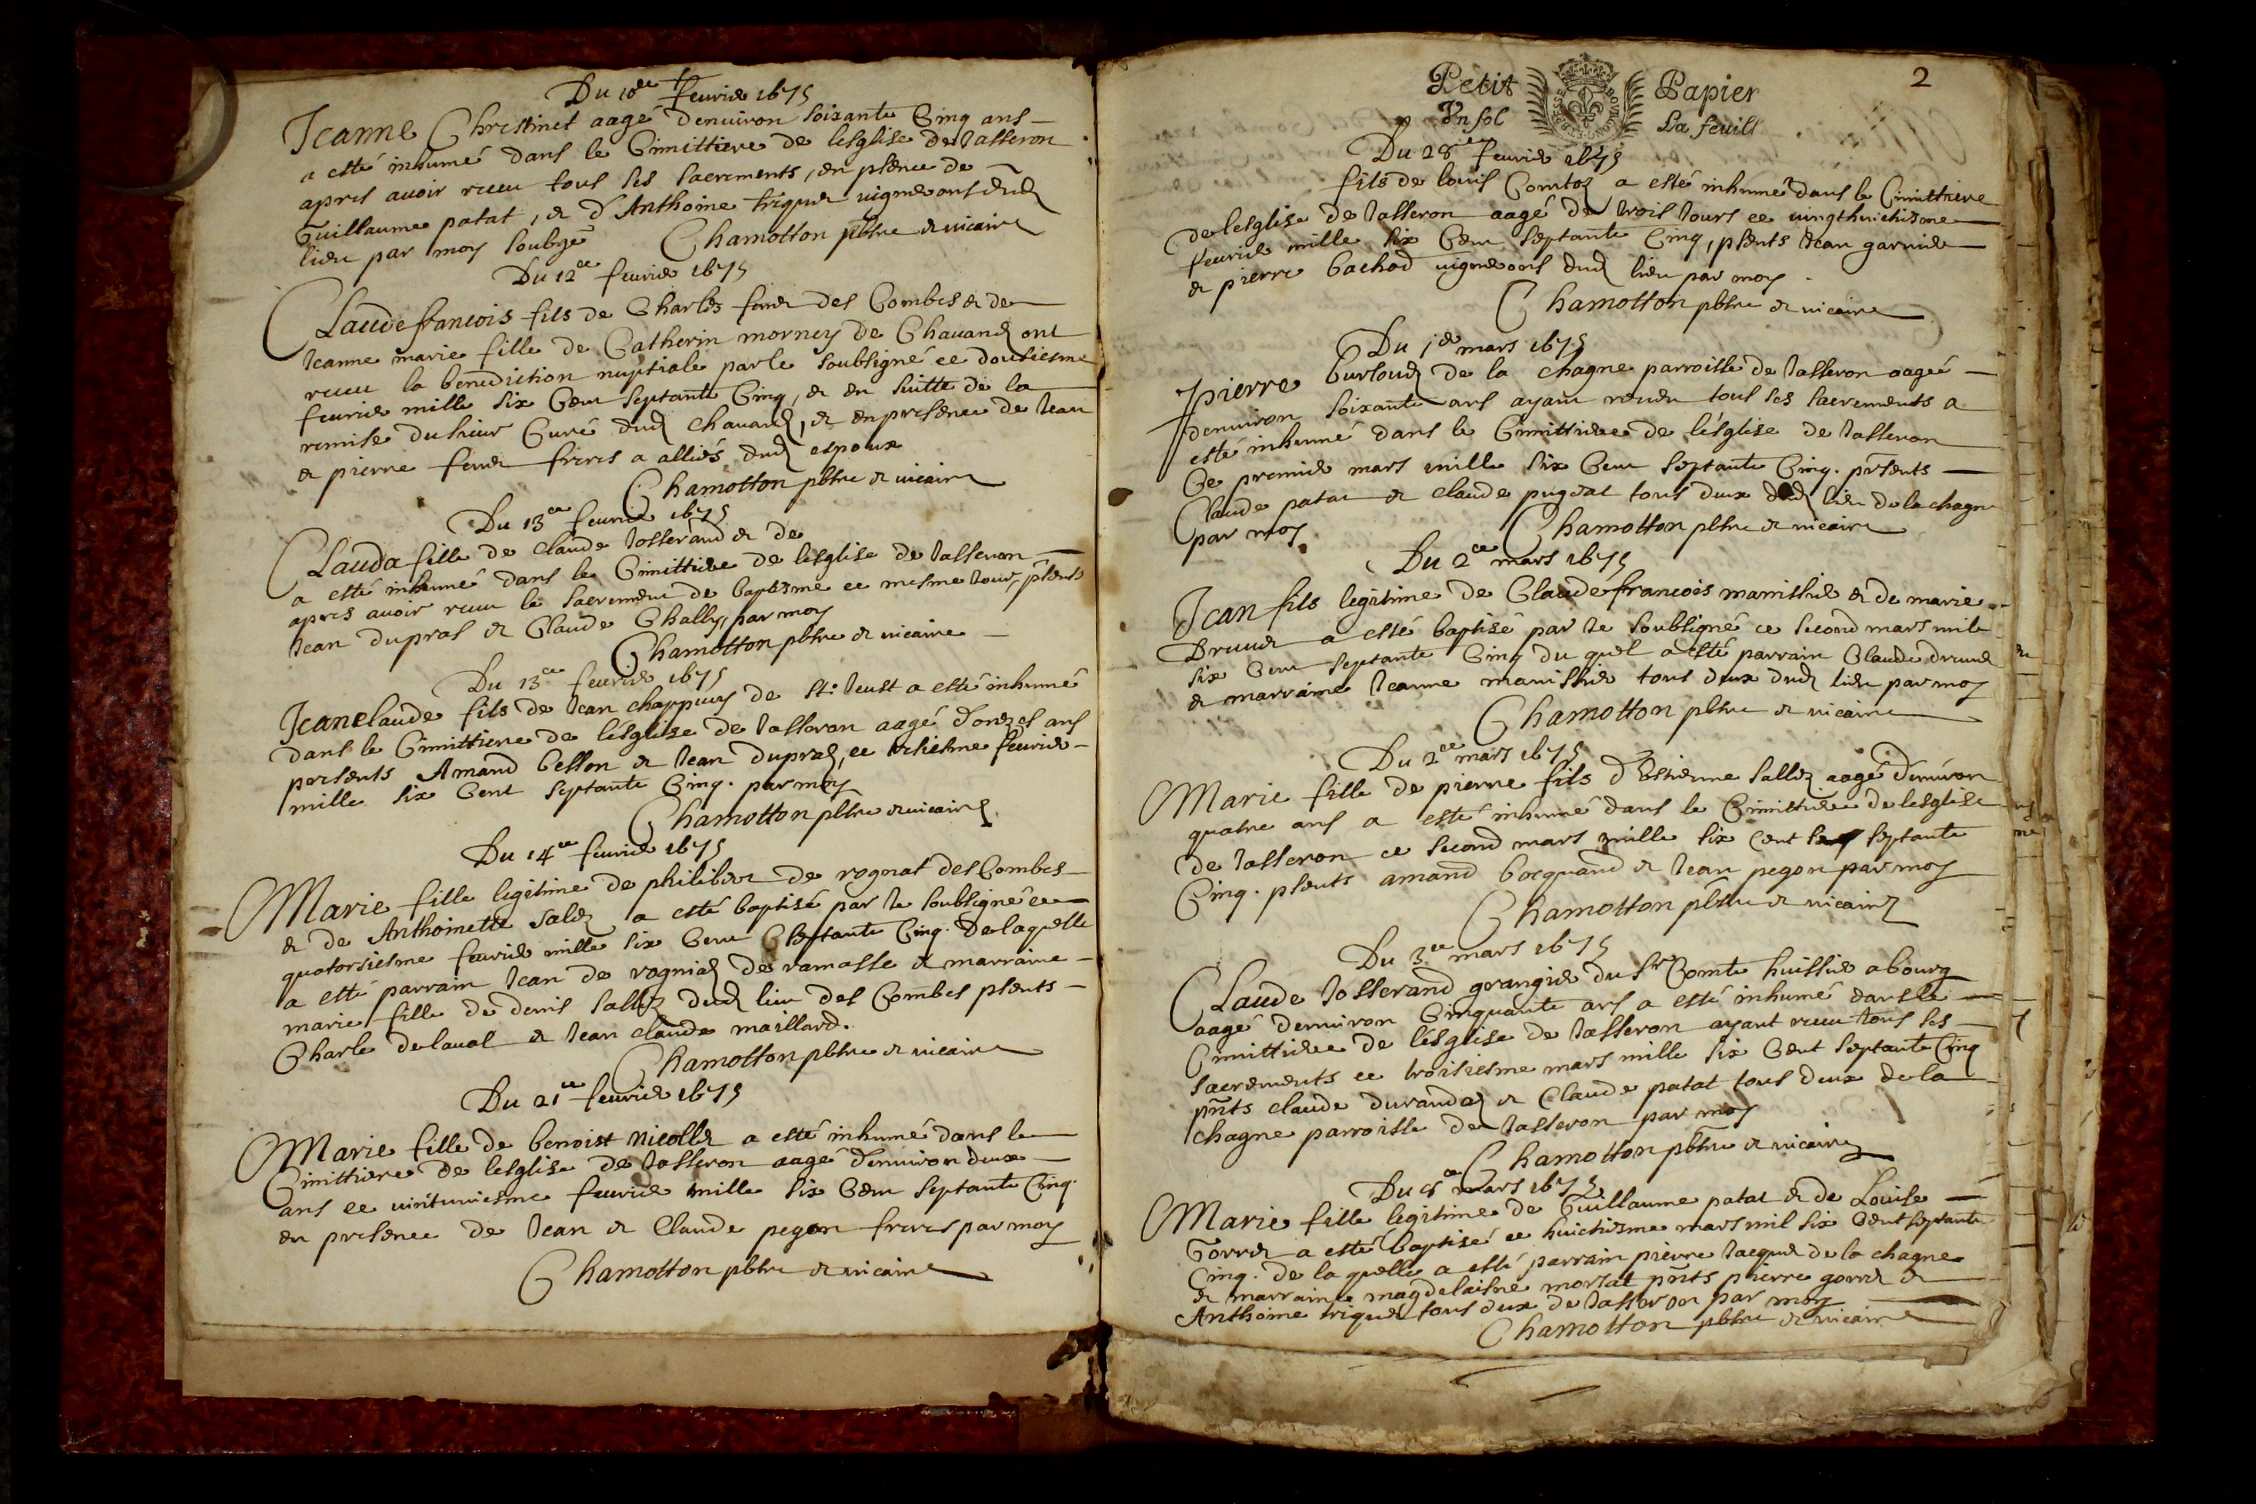 Du 10e febvrier 1675
Jeanne Chrestinet aagé d'environ soixante Cinq ans
a esté inhumé dans le Cimittiere de lesglise de Jasseron
apres avoir receu tous ses sacrements, en psence de
Guillaume patat, et d'Anthoine triquet vignerons dud
lieu par moy soubsé Chamotton pbtre et vicaire
Du 12e febvrier 1675
Claudefrancois fils de Charles des Combes et de
Jeanne marie fille de Catherin mornay de Chavand ont
receu la benediction nuptiale par le soubsigné ce dousiesme
fevrier mille six Cent septante Cinq, et en suitte de la
remise du sieur Curé dud Chavand, et en presence de Jean
et pierre freres a alliés dud espoux
Chamotton pbtre et vicaire
Du 13e fevrier 1675
Clauda fille de Claude Josserand et de
a esté inhumé dans le Cimittiere de lesglise de Jasseron
apres avoir receu le sacrement de baptesme ce mesme Jour, psents
Jean dupras et Claude Chally, par moy
Chamotton pbtre et vicaire
Du 13e fevrier 1675
Jeanclaude fils de Jean chappuis de St: Jeust a esté inhumé
dans le Cimittiere de lésglise de Jasseron aagé d'onzes ans
persents Amand besson et Jean dupras, ce tresiesme fevrier
mille six Cent septante Cinq. par moy
Chamotton pbtre et vicaire
Du 14e fevrier 1675
Marie fille legitime de philibert de rognat des Combes
et de Anthoinette salez a esté baptisé par Je soubsigné ce
quatorsiesme fevrier mille six Cent Septante Cinq. de laquelle
a esté parrain Jean de rogniat de ramasse et marraine
marie fille de denis sallez dud lieu des Combes psents
Charle delaval et Jean claude maillard.
Chamotton pbtre et vicaire
Du 21e fevrier 1675
Marie fille de benoist nicollet a esté inhumé dans le
Cimittiere de lesglise de Jasseron aagé d'environ deux
ans ce vintuniesme fevrier mille six Cent septante Cinq.
en presence de Jean et Claude pegon freres par moy
Chamotton pbtre et vicaire
2
Petit Papier
In fol La feuill
Du 28e fevrier 1675
fils de louis Comtoz a esté inhumé dans le Cimittiere
de lesglise de Jasseron aagé de trois Jours ce vingthuictiesme
fevrier mille six Cent septante Cinq, psents Jean garnier
et pierre bachod vignerons dud lieu par moy
Chamotton pbtre et vicaire
Du 1er mars 1675
pierre burloud de la chagne parroisse de Jasseron aagé
denviron soixante ans ayant receu tous ses sacrements a
esté inhumé dans le Cimittiere de lésglise de Jasseron
Ce premier mars mille six Cent septante Cinq. présents
Claude patat et claude pugeat tous deux dud lieu de la chagne
par moy Chamotton pbtre et vicaire
Du 2e mars 1675
Jean fils legitime de Claudefrancois manissier et de marie
Druet a esté baptisé par Je soubsigné ce second mars mile
six Cent septante Cinq du quel a esté parrain Claude druet
et marraine Jeanne manissier tous deux dud lieu par moy
Chamotton pbtre et vicaire
Du 2e mars 1675
Marie fille de pierre fils d'Estienne sallez aagé d'environ
quatre ans a esté inhumé dans le Cimittiere de lesglise
de Jasseron ce second mars mille six cent septante
Cinq. psents amand bocquand et Jean pegon par moy
Chamotton pbtre et vicaire
Du 3e mars 1675
Claude Josserand grangier du Sr Comte huissier a bourg
aagé denviron Cinquante ans a esté inhumé dans le
Cimittiere de lésglise de Jasseron ayant receu tous ses
sacrements ce troisiesme mars mille six Cent septante Cinq
pnts claude durandet et Claude patat tous deux de la
chagne parroisse de Jasseron par moy
Chamotton pbtre et vicaire
Du 8e mars 1675
Marie fille legitime de Guillaume patat et de Louise
Gorret a esté baptisé ce huictiesme mars mil six Cent septante
Cinq. de la quelle a esté parrain pierre Jacquet de la chagne
et marraine magdelaisne morsat pnts pierre gorret et
Anthoine triquet tous deux de Jasseron par moy
Chamotton pbtre et vicaire